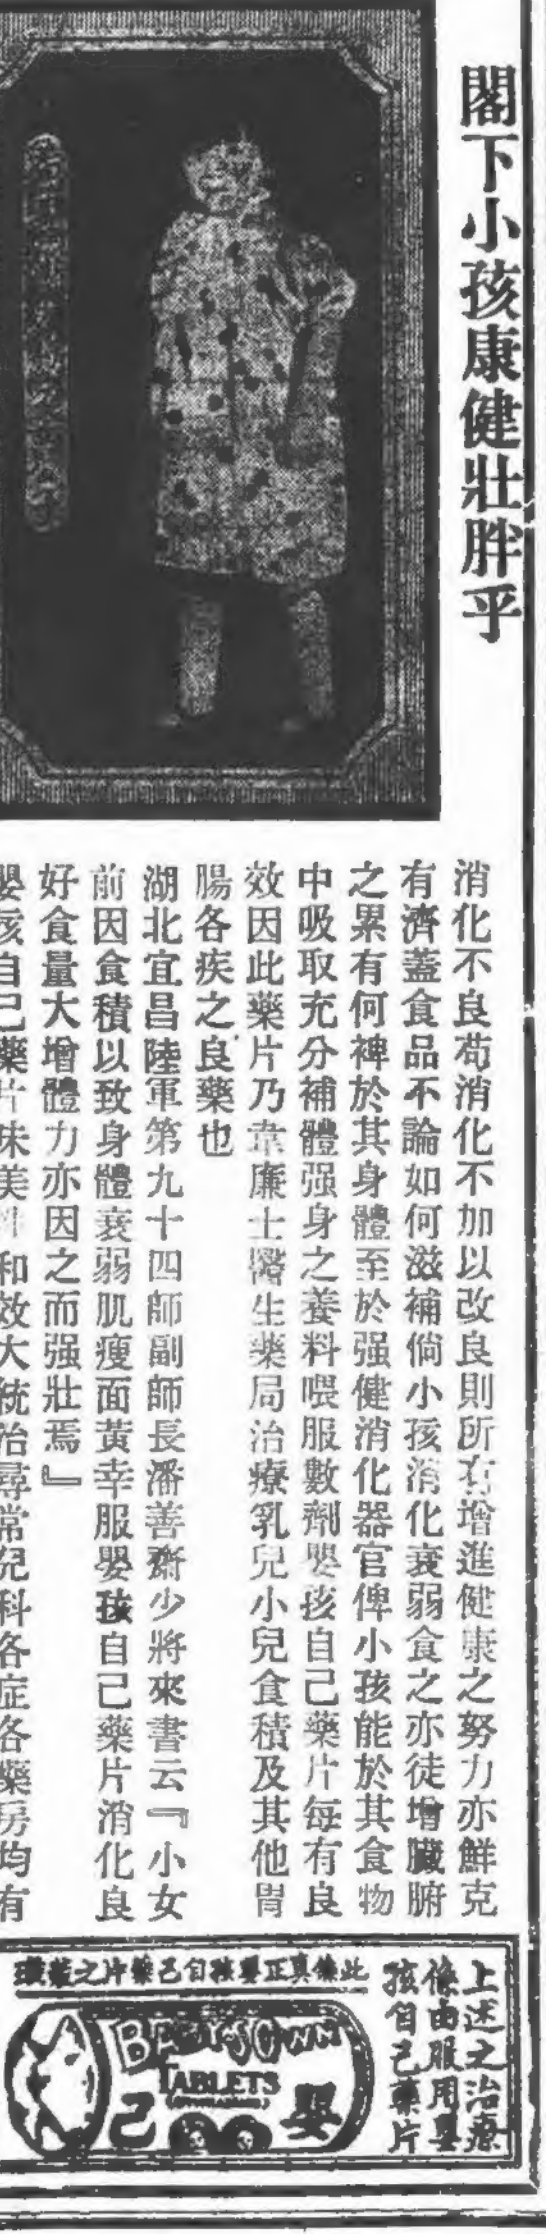 閣下小孩康健壯胖乎
消化不良苟消化不加以改良則所有增進健康之努力亦鮮克
有濟蓋食品不論如何滋補倘小孩消化衰弱食之亦徒增臟腑
之累有何裨於其身體至於强健消化器官俾小孩能於其食物
中吸取充分補體强身之養料喂服數劑嬰孩自己藥片每有良
效因此藥片乃韋廉士醫生藥局治療乳兒小兒食積及其他胃
腸各疾之良藥也
湖北宜昌陸軍第九十四師副師長潘善齋少將來書云『小女
前因食積以致身體衰弱肌瘦面黃幸服嬰孩自己藥片消化良
好食量大增體力亦因之而强壯焉』
嬰孩自己藥片味美 和效大統治尋常兒科各症各藥房均有
上述之治療
係由服用嬰
孩自己藥片
此係真正嬰孩自己藥片之
BABY'S OWN
TABLETS
嬰
己